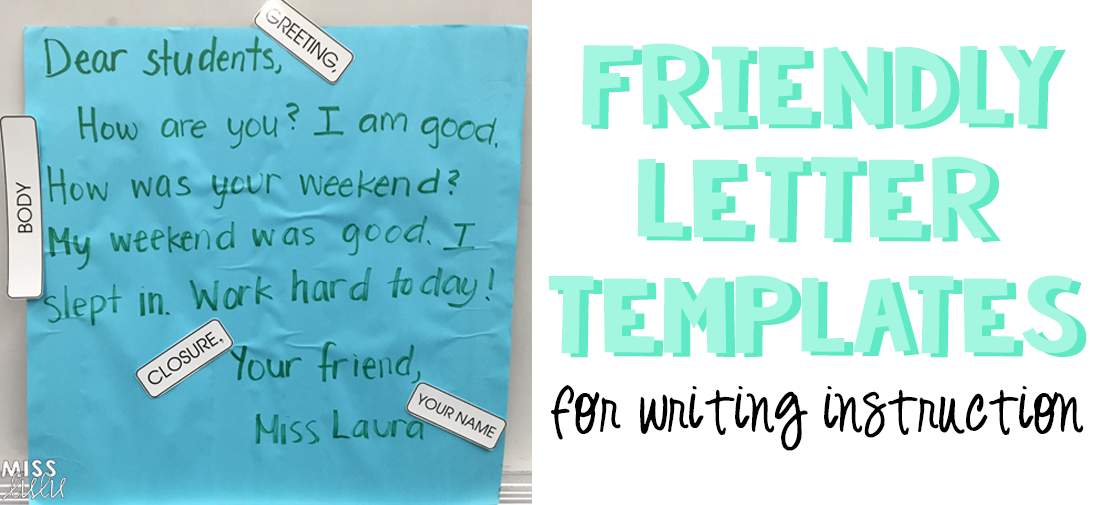 GREETING,
Dear students,
How are you? I am good.
How was your weekend?
My weekend was good. I
slept in. Work hard today!
BODY
CLOSURE,
Your friend,
Miss Laura
YOUR NAME
MISS
lulu
FRIENDLY
LETTER
TEMPLATES
for writing instruction